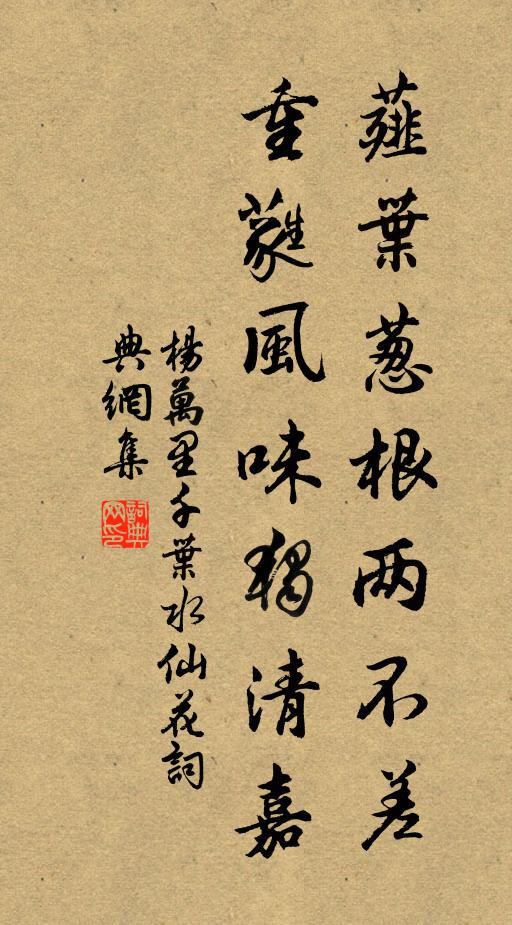 薤葉葱根兩不差
重蕤風味獨清嘉
楊萬里千葉水仙花詞
典網集
詞典
网印